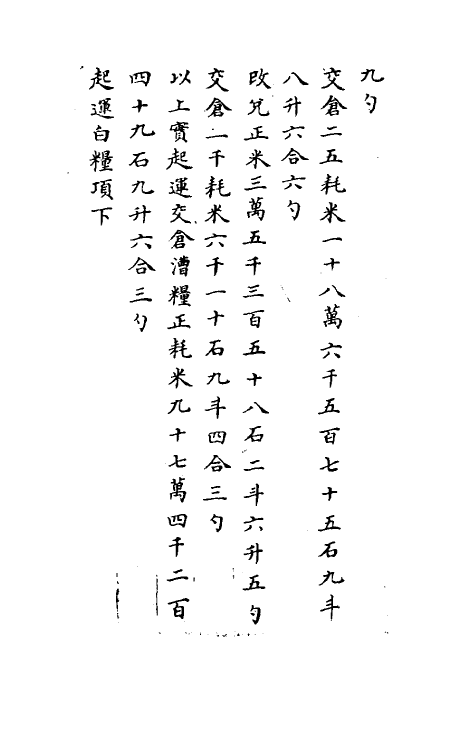 九勺
交倉二五耗米一十八萬六千五百七十五石九斗
八升六合六勺
改兌正米三萬五千三百五十八石二斗六升五勺
交倉一千耗米六千一十石九斗四合三勺
以上實起運交倉漕糧正耗米九十七萬四千二百
四十九石九升六合三勺
起運白糧項下